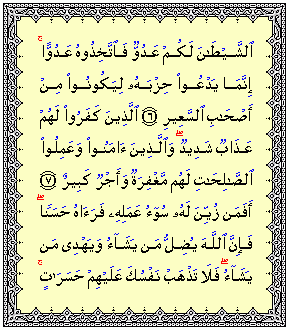 ٱلشَّيْطَٰنَ لَكُمْ عَدُوٌّ فَٱتَّخِذُوهُ عَدُوًّا ۚ
إِنَّمَا يَدْعُوا۟ حِزْبَهُۥ لِيَكُونُوا۟ مِنْ
أَصْحَٰبِ ٱلسَّعِيرِ ٦ ٱلَّذِينَ كَفَرُوا۟ لَهُمْ
عَذَابٌ شَدِيدٌ ۖ وَٱلَّذِينَ ءَامَنُوا۟ وَعَمِلُوا۟
ٱلصَّٰلِحَٰتِ لَهُم مَّغْفِرَةٌ وَأَجْرٌ كَبِيرٌ ٧
أَفَمَن زُيِّنَ لَهُۥ سُوٓءُ عَمَلِهِۦ فَرَءَاهُ حَسَنًا ۖ
فَإِنَّ ٱللَّهَ يُضِلُّ مَن يَشَآءُ وَيَهْدِى مَن
يَشَآءُ ۖ فَلَا تَذْهَبْ نَفْسُكَ عَلَيْهِمْ حَسَرَٰتٍ ۚ